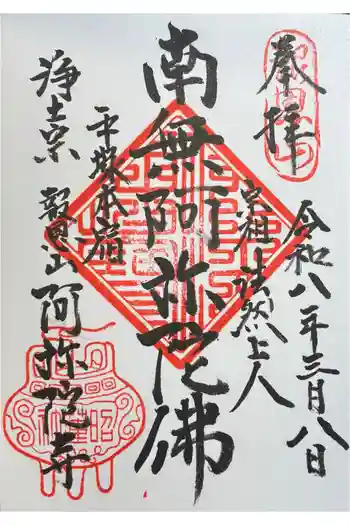 奉拝
令和八年三月八日
宗祖 法然上人
南無阿弥陀佛
平塚本宿
浄土宗
報恩山 阿弥陀寺